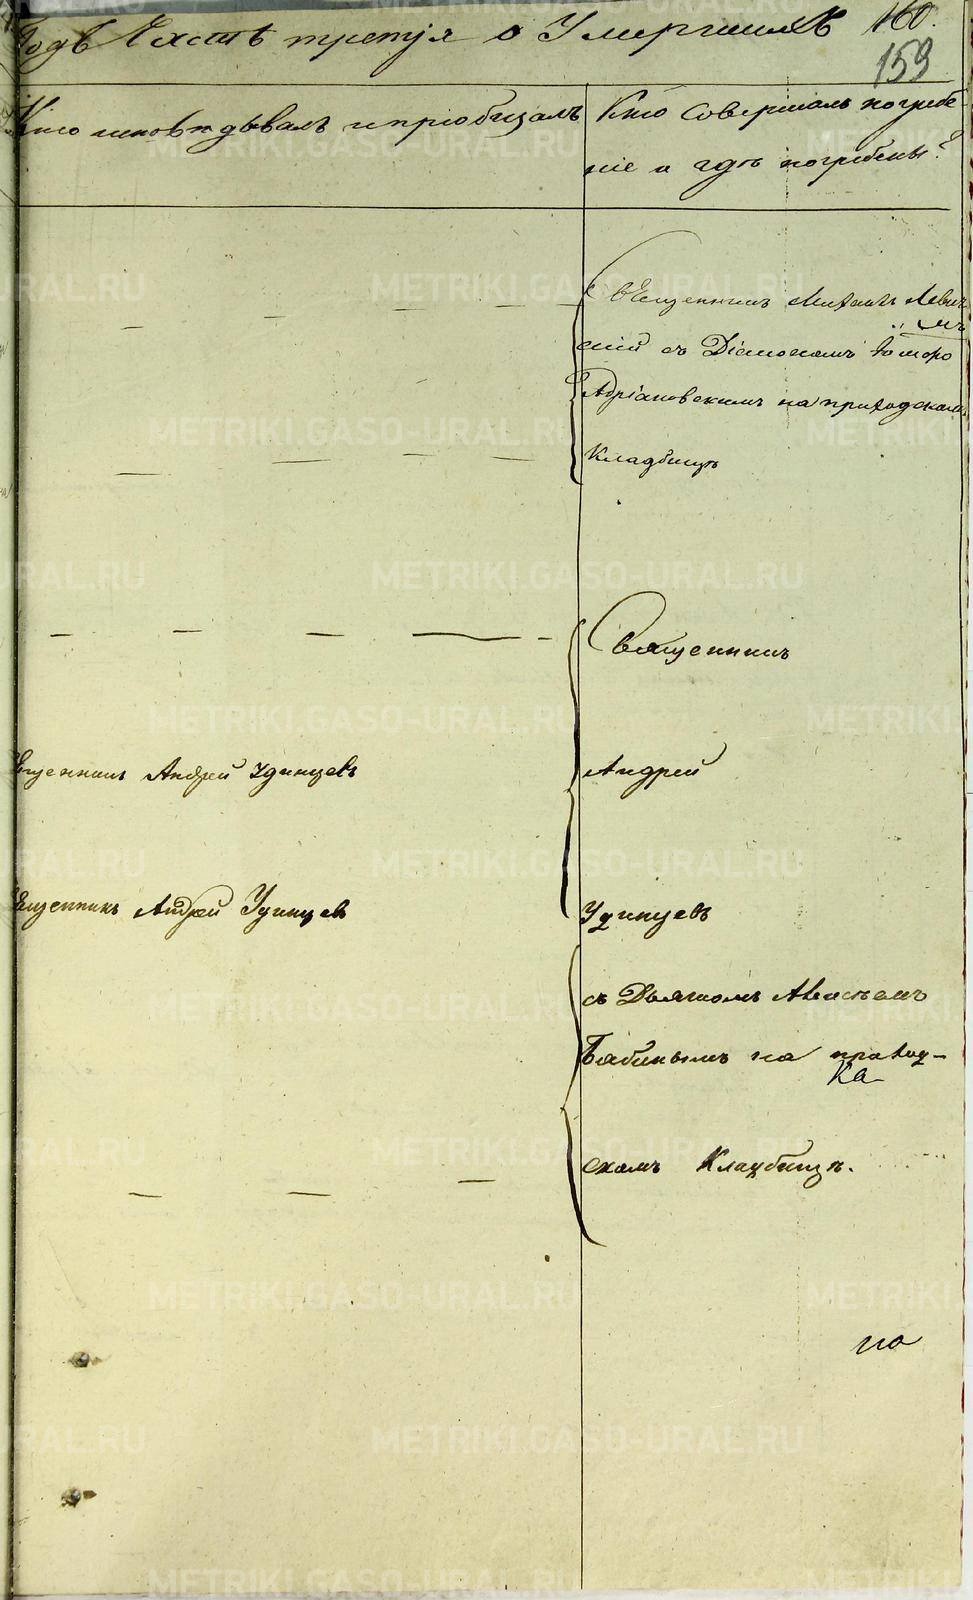 Годъ Часть третія о Умершихъ 160.
159
Кто исповѣдывалъ и пріобщалъ
Кто совершалъ погребе
ніе и гдѣ погребены?
Священникъ Михаилъ Левиц
кій съ Діакономъ
Адріановскимъ на приходскомъ
Кладбищѣ
Священникъ
Священникъ Андрей Удинцевъ
Андрей
Священникъ Андрей Удинцевъ
Удинцевъ
съ Дьячкомъ Алексѣемъ
Бабинымъ на приход-
ка
скомъ Кладбищѣ.
по
METRIKI.GASO-URAL.RU